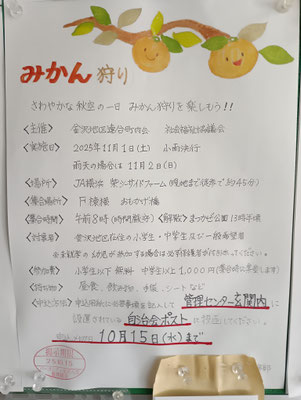 みかん狩り
さわやかな秋空の一日 みかん狩りを楽しもう!!
〈主催〉 金沢地区連合町内会 社会福祉協議会
〈実施日〉 2025年11月1日(土) 小雨決行
雨天の場合は 11月2日(日)
〈場所〉 JA横浜 柴シーサイドファーム(現地まで徒歩で約45分)
〈集合場所〉 F棟横 おもかげ橋
〈集合時間〉 午前8時(時間厳守) 〈解散〉まつかぜ公園13時半頃
〈対象者〉 金沢地区在住の小学生・中学生及び一般希望者
〈参加費〉 小学生以下 無料 中学生以上 1,000円(集合時に準備します)
〈持ち物〉 昼食、飲み物、水筒、シートなど
〈申込方法〉 申込用紙に必要事項を記入して 管理センター玄関内に
設置されている 自治会ポストに投函してください。
10月15日(水)まで